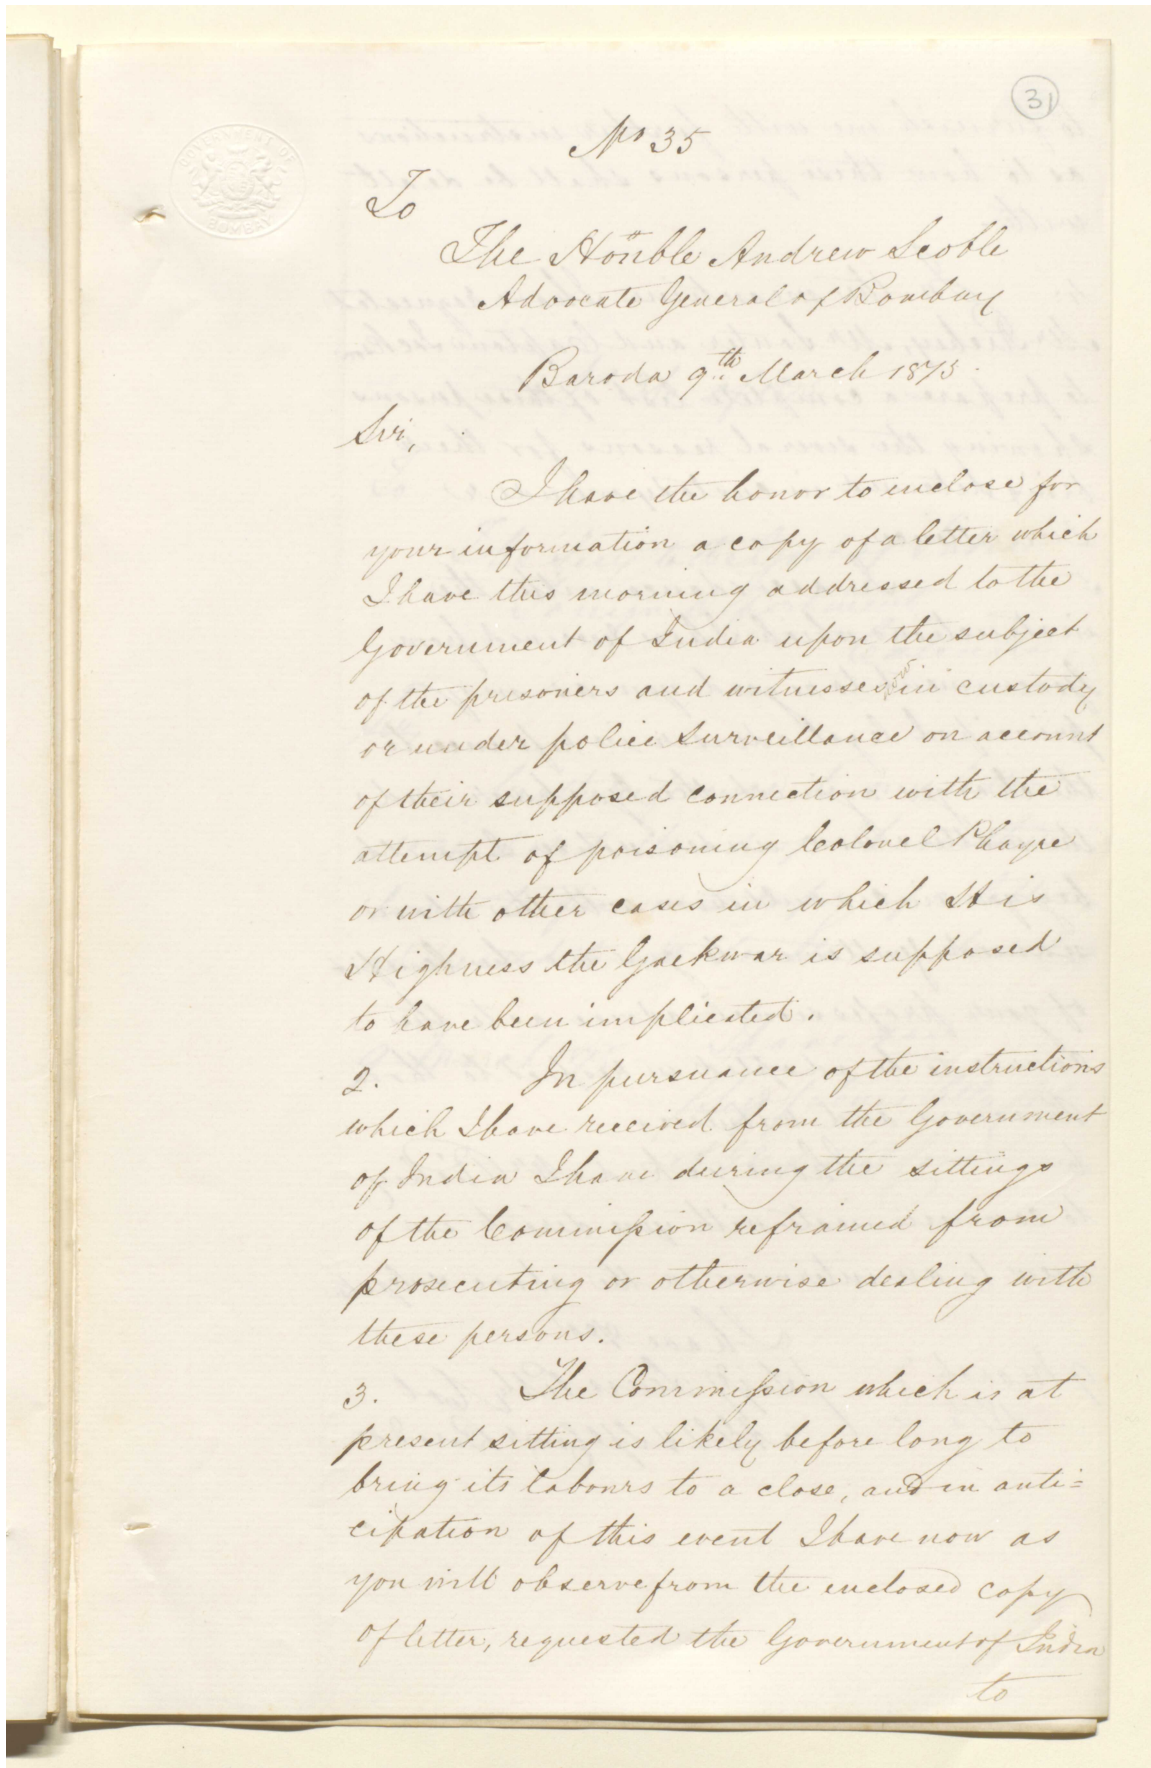 31
GOVERNMENT OF
BOMBAY
No 35
To
The Honble Andrew Scoble
Advocate General of Bombay
Baroda 9th March 1875.
Sir,
I have the honor to enclose for
your information a copy of a letter which
I have this morning addressed to the
Government of India upon the subject
of the prisoners and witnesses now in custody
or under police surveillance on account
of their supposed connection with the
attempt of poisoning Colonel Phayre
or with other cases in which His
Highness the Gaekwar is supposed
to have been implicated.
2. In pursuance of the instructions
which I have received from the Government
of India I have during the sittings
of the Commission refrained from
prosecuting or otherwise dealing with
these persons.
3. The Commission which is at
present sitting is likely before long to
bring its labours to a close, and in anti=
cipation of this event I have now as
you will observe from the enclosed copy
of letter, requested the Government of India
to